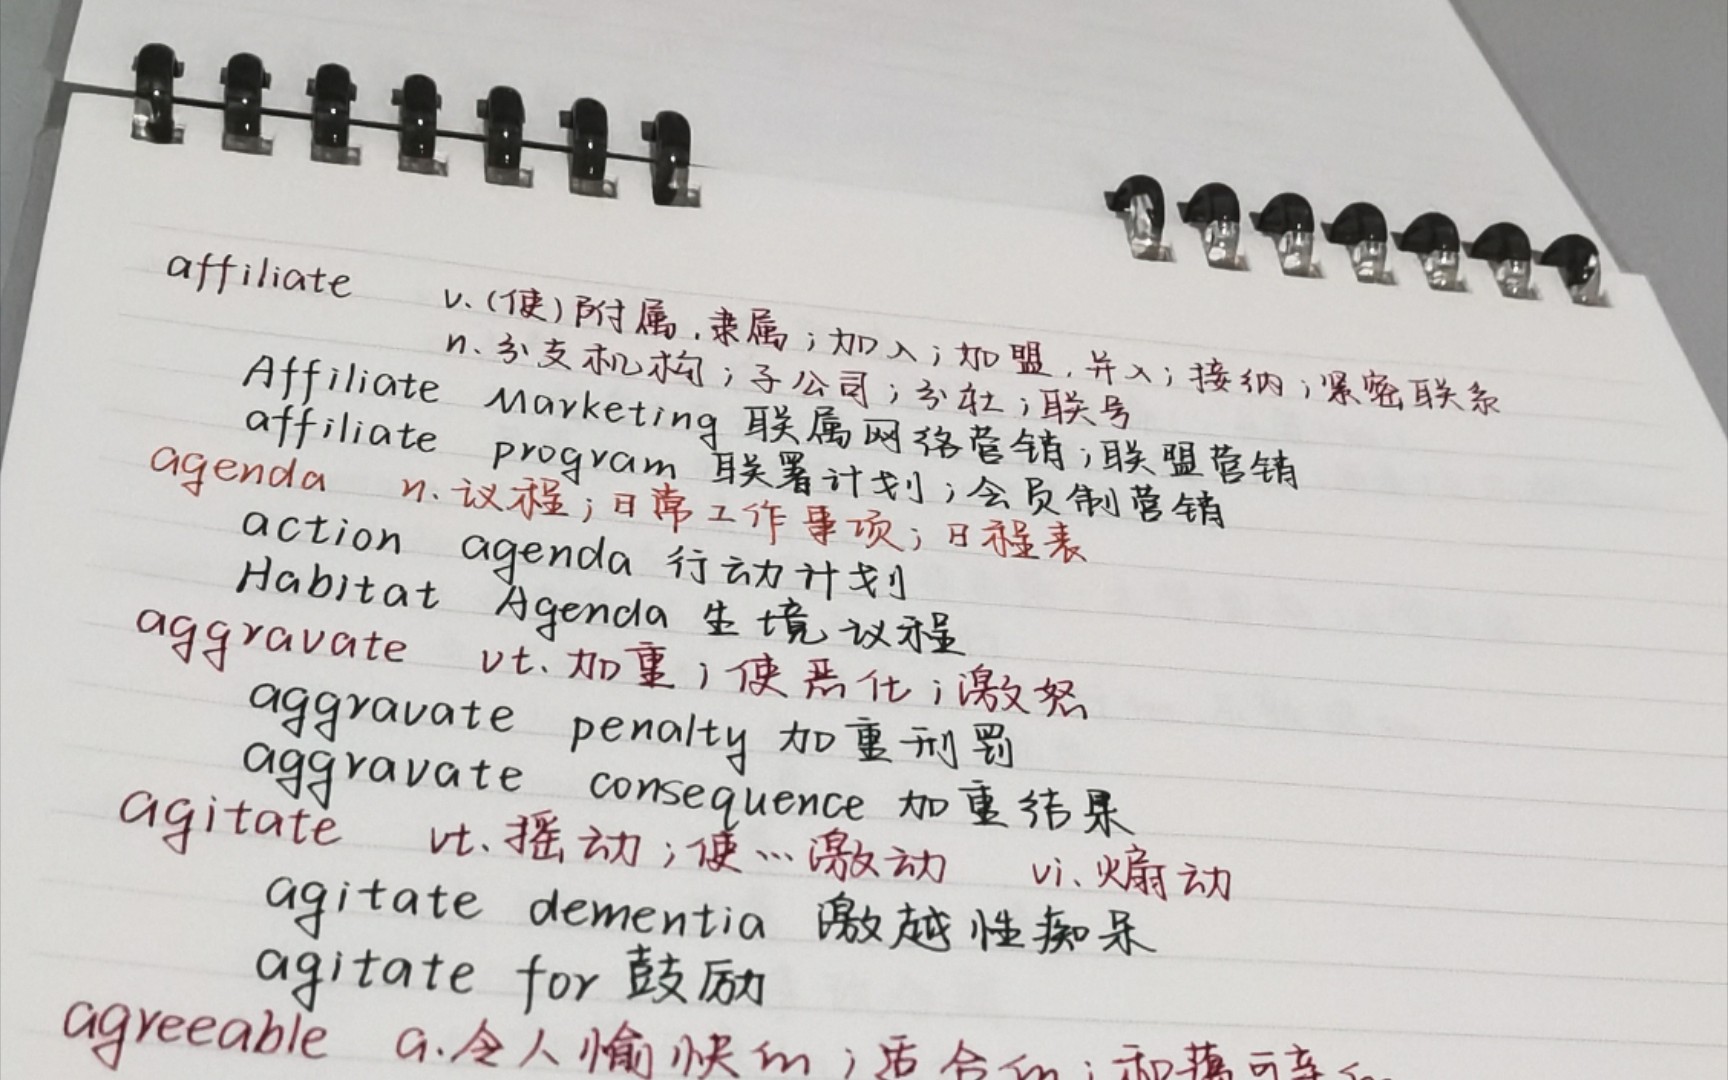 affiliate v.(使)附属,隶属;加入;加盟,并入;接纳;紧密联系
n.分支机构;子公司;分社;联号
Affiliate Marketing 联属网络营销;联盟营销
affiliate program 联署计划;会员制营销
agenda n.议程;日常工作事项;日程表
action agenda 行动计划
Habitat Agenda 生境议程
aggravate vt.加重;使恶化;激怒
aggravate penalty 加重刑罚
aggravate consequence 加重结果
agitate vt.摇动;使…激动 vi.煽动
agitate dementia 激越性痴呆
agitate for 鼓励
agreeable a.令人愉快的;适合的;和蔼可亲的